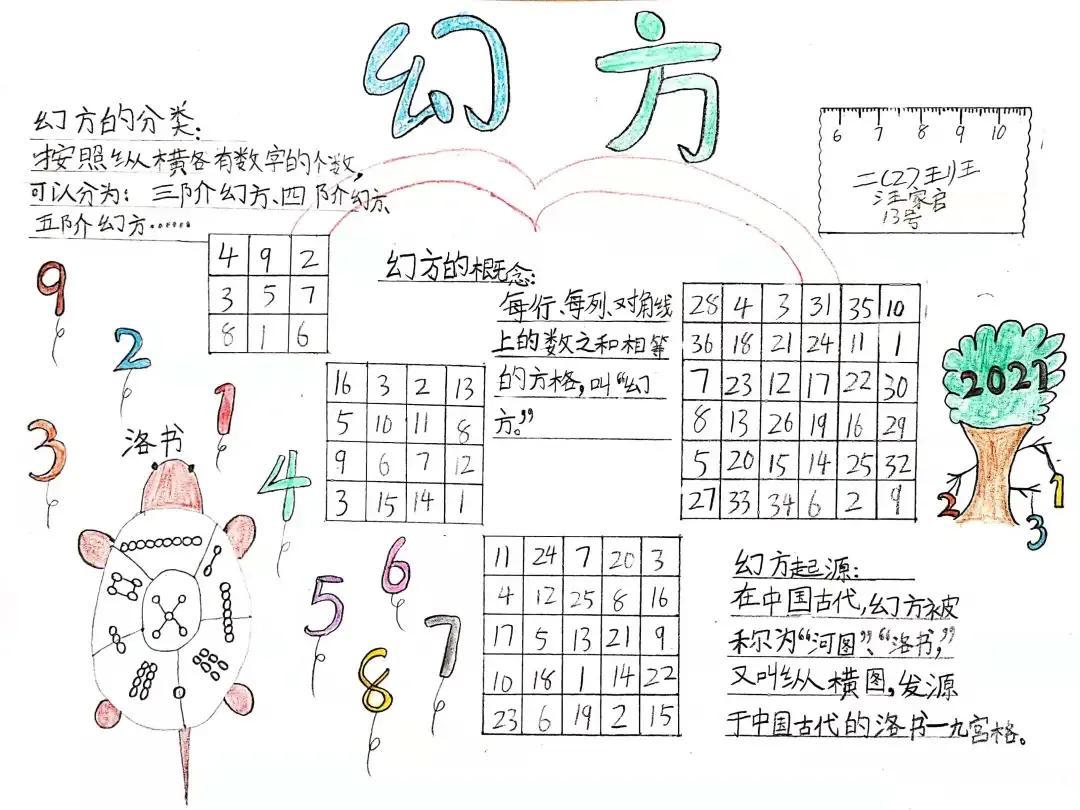 幻方
幻方的分类：
按照纵横各有数字的个数，
可以分为：三阶幻方、四阶幻方、
五阶幻方……
6 7 8 9 10
二(2)班
13号
4 9 2
3 5 7
8 1 6
幻方的概念：
每行、每列、对角线
上的数之和相等
的方格，叫“幻
方。”
28 4 3 31 35 10
36 18 21 24 11 1
7 23 12 17 22 30
8 13 26 19 16 29
5 20 15 14 25 32
27 33 34 6 2 9
16 3 2 13
5 10 11 8
9 6 7 12
3 15 14 1
9
2
1
3
4
洛书
6
5
7
8
2021
2
1
3
11 24 7 20 3
4 12 25 8 16
17 5 13 21 9
10 18 1 14 22
23 6 19 2 15
幻方起源：
在中国古代，幻方被
称为“河图”、“洛书，”
又叫纵横图，发源
于中国古代的洛书—九宫格。